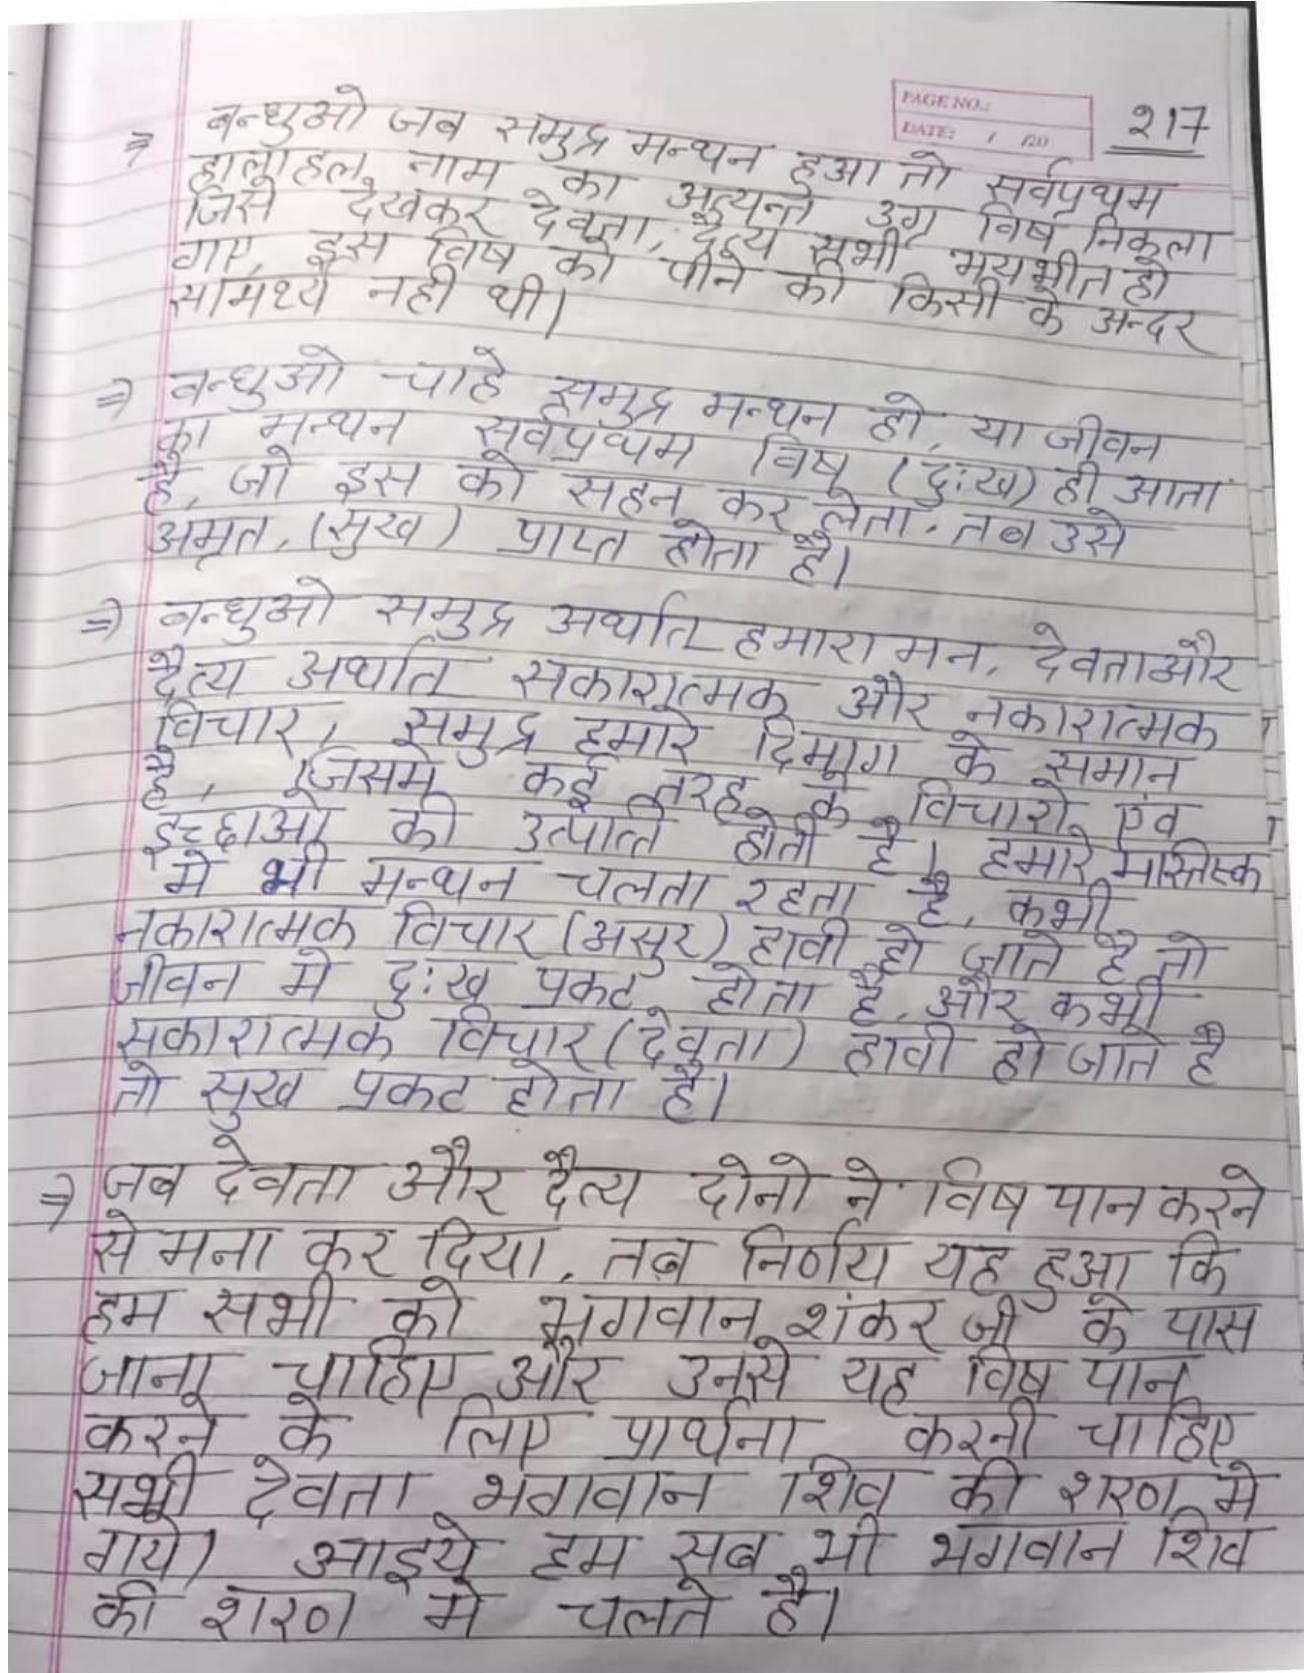 PAGE NO.:
DATE: / /20
217
⇒ बन्धुओ जब समुद्र मन्थन हुआ तो सर्वप्रथम
हालाहल नाम का अत्यन्त उग्र विष निकला
जिसे देखकर देवता, दैत्य सभी भयभीत हो
गए, इस विष को पीने की किसी के अन्दर
सामर्थ्य नही थी।
⇒ बन्धुओ चाहे समुद्र मन्थन हो, या जीवन
का मन्थन सर्वप्रथम विष (दुःख) ही आता
है, जो इस को सहन कर लेता, तब उसे
अमृत, (सुख) प्राप्त होता है।
⇒ बन्धुओ समुद्र अर्थात हमारा मन, देवता और
दैत्य अर्थात सकारात्मक और नकारात्मक
विचार, समुद्र हमारे दिमाग के समान
है, जिसमे कई तरह के विचारो एंव
इच्छाओ की उत्पत्ति होती है, हमारे मस्तिष्क
मे भी मन्थन चलता रहता है, कभी
नकारात्मक विचार (असुर) हावी हो जाते है तो
जीवन मे दुःख प्रकट होता है, और कभी
सकारात्मक विचार (देवता) हावी हो जाते है
तो सुख प्रकट होता है।
⇒ जब देवता और दैत्य दोनो ने विष पान करने
से मना कर दिया, तब निर्णय यह हुआ कि
हम सभी को भगवान शंकर जी के पास
जाना चाहिए और उनसे यह विष पान
करने के लिए प्रार्थना करनी चाहिए
सभी देवता भगवान शिव की शरण मे
गये। आइये हम सब भी भगवान शिव
की शरण मे चलते है।